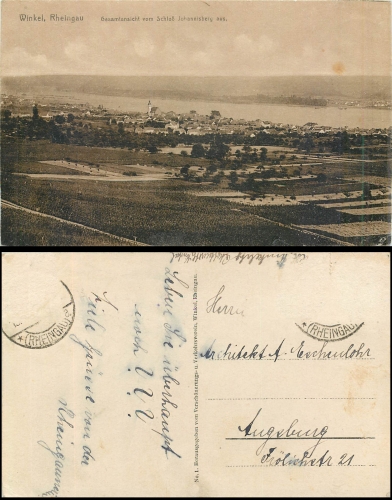 Winkel, Rheingau
Gesamtansicht vom Schloß Johannisberg aus.
Leben Sie überhaupt
noch ???
Viele Grüsse von der
Rheingau
(RHEINGAU)
No. 1. Herausgegeben vom Verschönerungs- u. Verkehrsverein, Winkel, Rheingau.
Herrn
(RHEINGAU)
Architekt A. Eschenlohr
Augsburg
Frölichstr 21